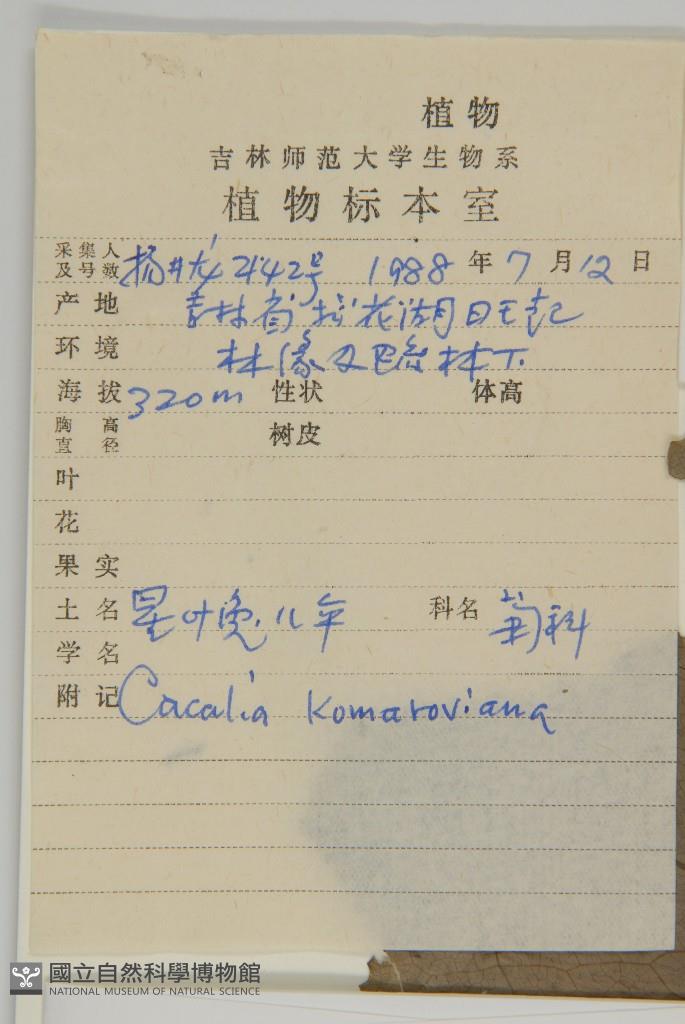 植物
吉林师范大学生物系
植物标本室
采集人及号数 2142号 1988年7月12日
产地 吉林省松花湖
环境 林缘及 林下.
海拔 320m 性状 体高
胸高直径 树皮
叶
花
果实
土名 星叶兔儿 科名 菊科
学名
附记 Cacalia Komaroviana
國立自然科學博物館
NATIONAL MUSEUM OF NATURAL SCIENCE